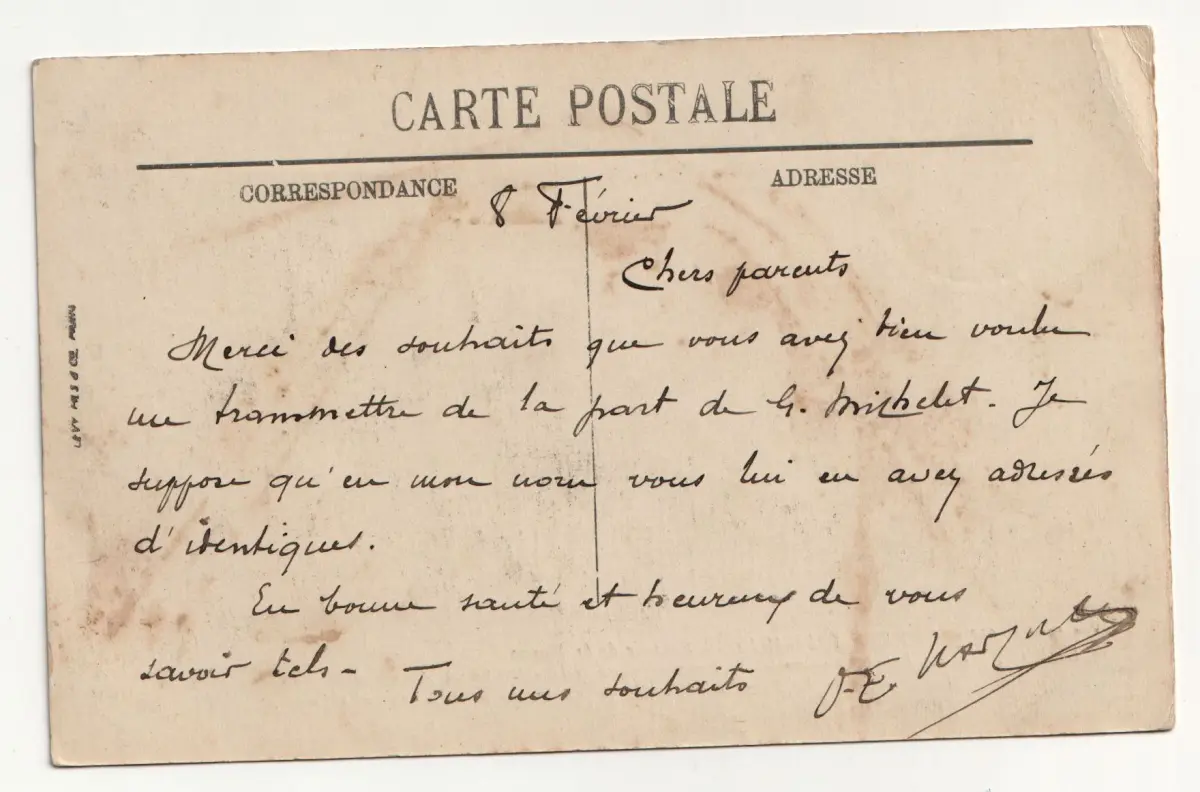 CARTE POSTALE
CORRESPONDANCE
ADRESSE
8 Février
Chers parents
Merci des souhaits que vous avez bien voulu
me transmettre de la part de G. Michelet. Je
suppose qu'en mon nom vous lui en avez adressés
d'identiques.
En bonne santé et heureux de vous
savoir tels -
Tous mes souhaits
LEVY FILS & CIE PARIS